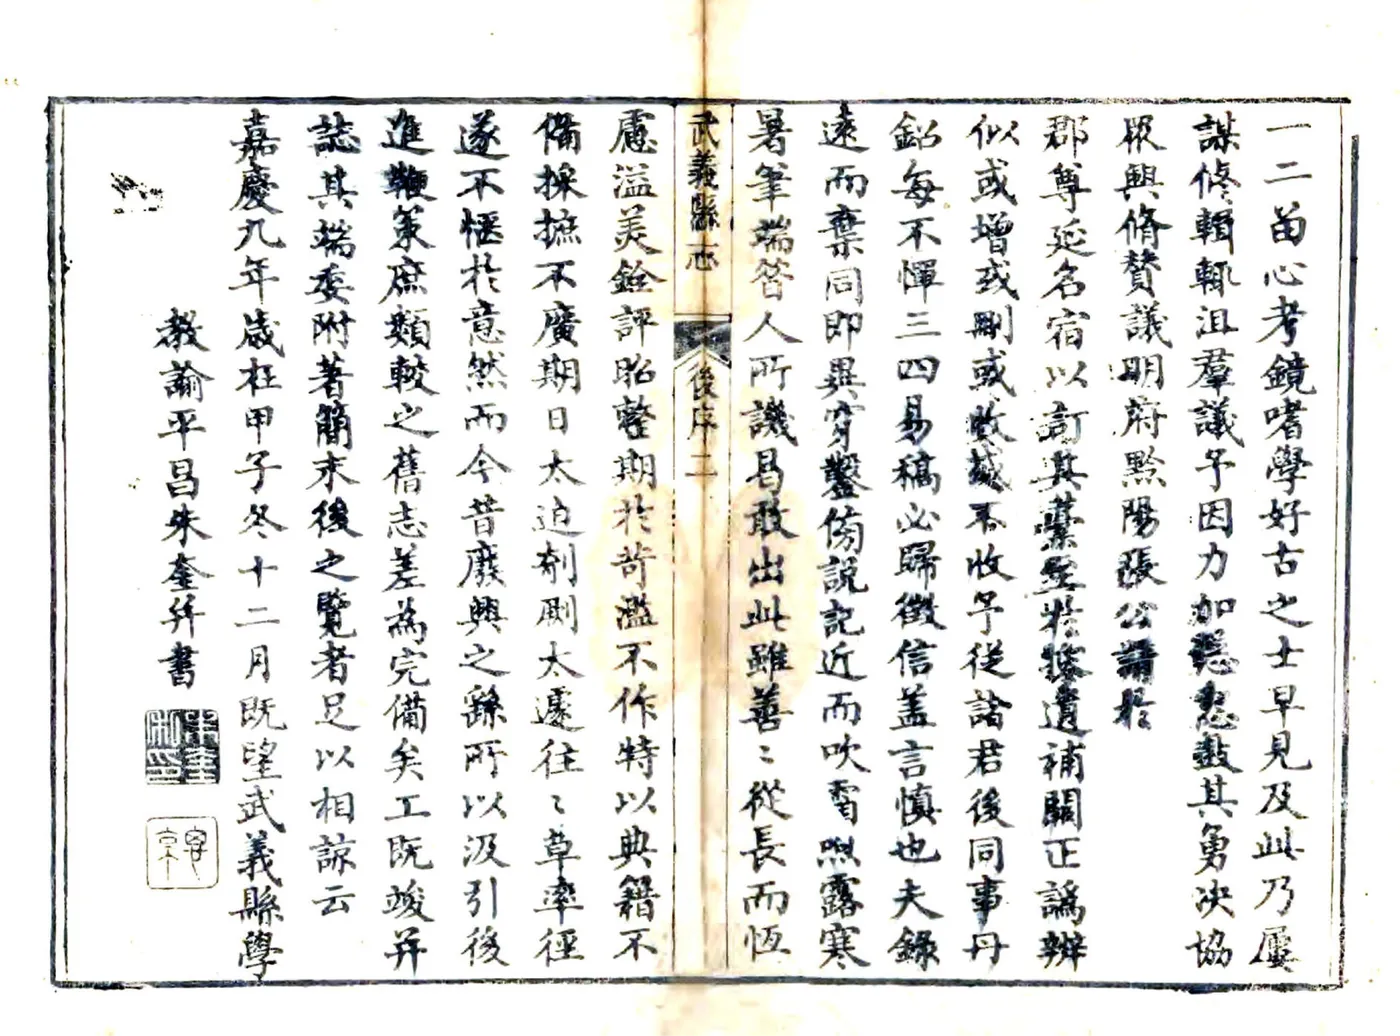 一二苗心考鏡嗜學好古之士早見及此乃屢
謀修輯輒沮羣議予因力加慫恿鼓其勇決協
眾興脩贊議明府黔陽張公請於
郡尊延名宿以訂其藁至於搜遺補闕正譌辨
似或增或刪或收或不收予從諸君後同事丹
鉛每不憚三四易稿必歸徵信盖言慎也夫錄
遠而棄同即異穿鑿傍說記近而吹霄喣露寒
暑筆端昔人所譏曷敢出此雖善〻從長而恆
慮溢美銓評昭整期於苛濫不作特以典籍不
備採摭不廣期日太迫剞劂太遽往〻草率徑
遂不愜於意然而今昔廢興之繇所以汲引後
進鞭策庶類較之舊志差為完備矣工既竣并
誌其端委附著簡末後之覽者足以相諒云
嘉慶九年歲在甲子冬十二月既望武義縣學
教諭平昌朱奎并書
武義縣志
後序二